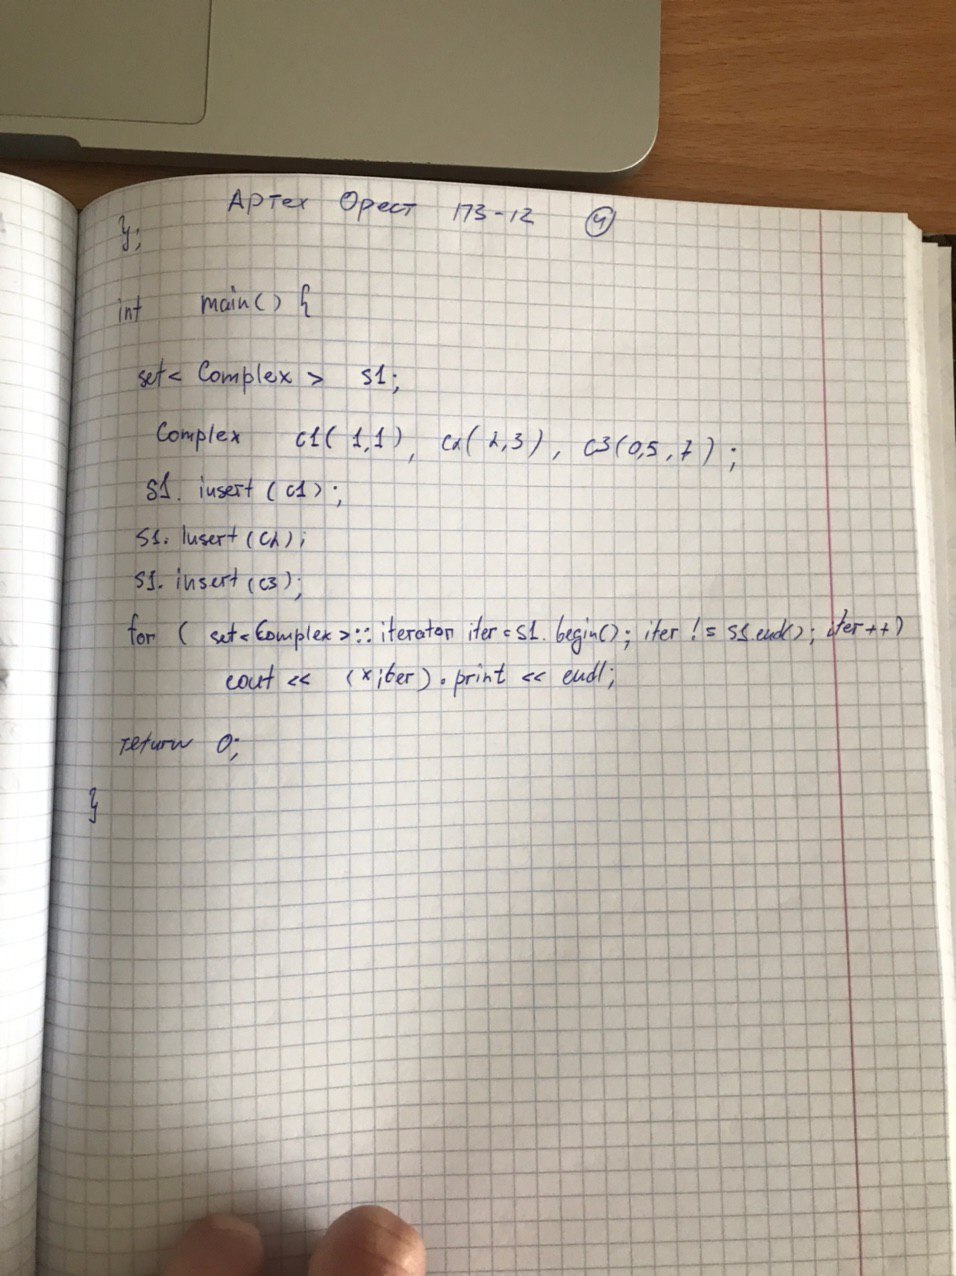 Артех Орест ПЗ-12 4
};
int main() {
set< Complex > s1;
Complex c1(1,1), c2(2,3), c3(0,5,7);
s1. insert (c1);
s1. Insert (c2);
s1. insert (c3);
for ( set<Complex>:: iterator iter = s1. begin(); iter != s1.end(); iter++)
cout << (*iter). print << endl;
return 0;
}